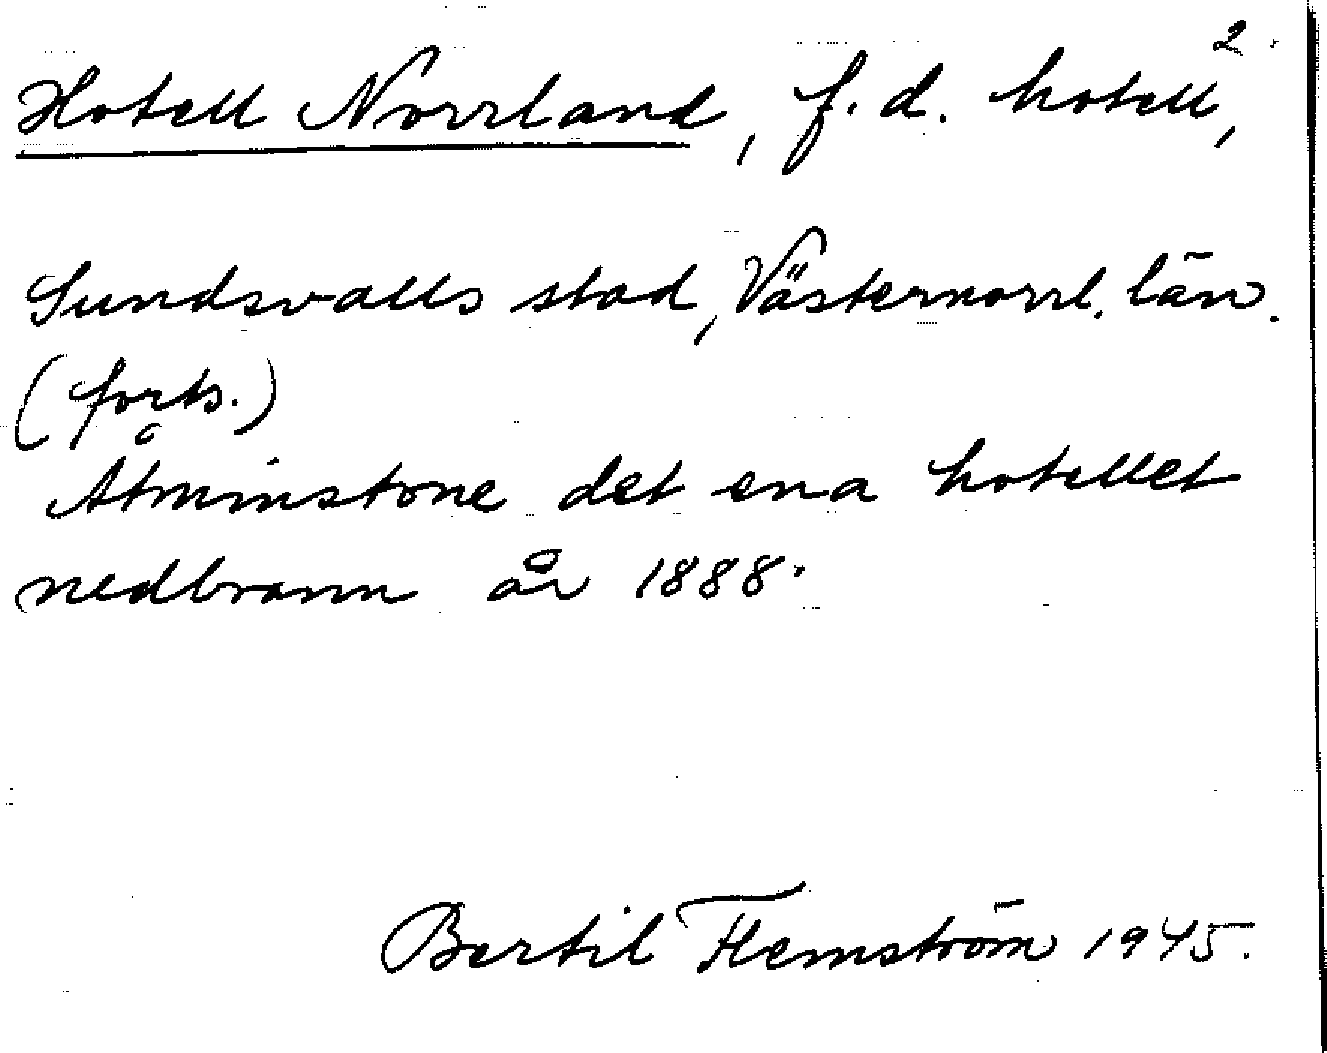 2.
Hotell Norrland, f.d. hotell,
Sundsvalls stad, Västernorrl. län.
(forts.)
Åtminstone det ena hotellet
nedbrann år 1888.
Bertil Flemström 1945.